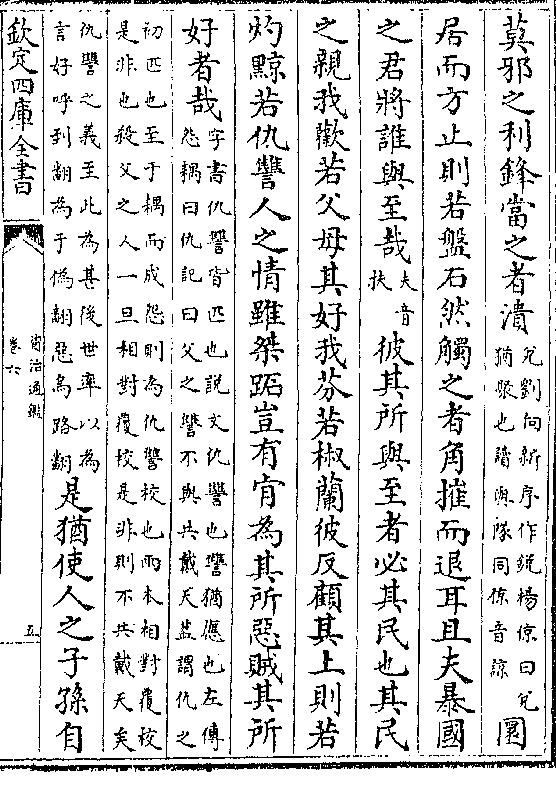 莫邪之利鋒當之者潰兊劉向新序作銳楊倞曰兊猶聚也讀與隊同倞音諒圜
居而方止則若盤石然觸之者角摧而退耳且夫暴國
之君將誰與至哉夫音扶彼其所與至者必其民也其民
之親我歡若父母其好我芬若椒蘭彼反顧其上則若
灼黥若仇讐人之情雖桀跖豈有肯為其所惡賊其所
好者哉字書仇讐皆匹也説文仇讐也讐猶應也左傳怨耦曰仇記曰父之讐不與共戴天盖謂仇之
初匹也至于耦而成怨則為仇讐校也兩本相對覆校是非也殺父之人一旦相對覆校是非則不共戴天矣
仇讐之義至此為甚後世率以為言好呼到翻為于偽翻惡烏路翻是猶使人之子孫自
欽定四庫全書
資治通鑑
卷六
五